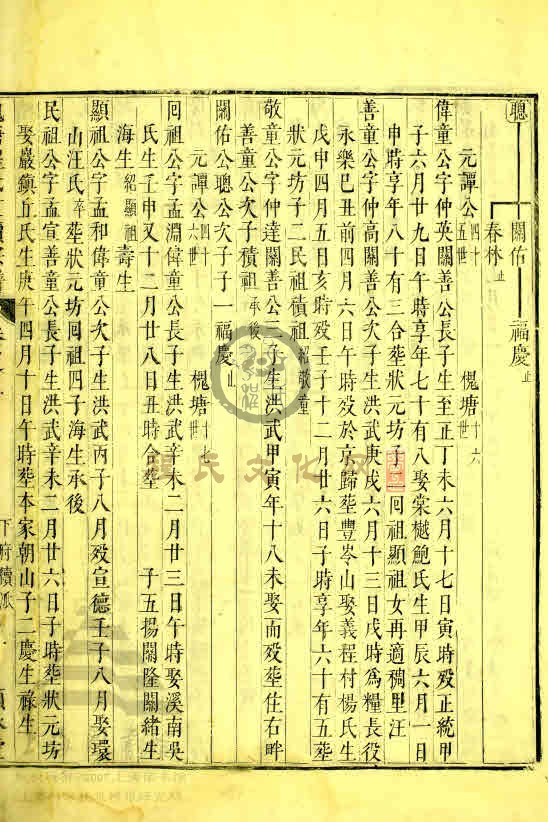 聰 關佑 福慶止
春林止
元譚公四十五世 槐塘十六世
偉童公字仲英關善公長子生至正丁未六月十七日寅時歿正統甲
子六月廿九日午時享年七十有八娶棠樾鮑氏生甲辰六月一日
申時享年八十有三合塟狀元坊子二回祖顯祖女再適稠里汪
善童公字仲高關善公次子生洪武庚戌六月十三日戌時為糧長役
永樂巳丑前四月六日午時歿於京歸塟豐岑山娶義程村楊氏生
戊申四月五日亥時歿壬子十二月廿六日子時享年六十有五塟
狀元坊子二民祖積祖紹敬童
敬童公字仲達關善公三子生洪武甲寅年十八未娶而歿塟住右畔
善童公次子積祖承後
關佑公聰公次子子一福慶止
元譚公四十六世 槐塘十七世
回祖公字孟淵偉童公長子生洪武辛未二月廿三日午時娶溪南吳
氏生壬申又十二月廿八日丑時合塟 子五揚關隆關緒生
海生紹顯祖壽生
顯祖公字孟和偉童公次子生洪武丙子八月歿宣德壬子八月娶環
山汪氏卒塟狀元坊回祖四子海生承後
民祖公字孟宣善童公長子生洪武辛未二月廿六日子時塟狀元坊
娶嚴鎮丘氏生庚午四月十日午時塟本家朝山子二慶生祿生
下府續派